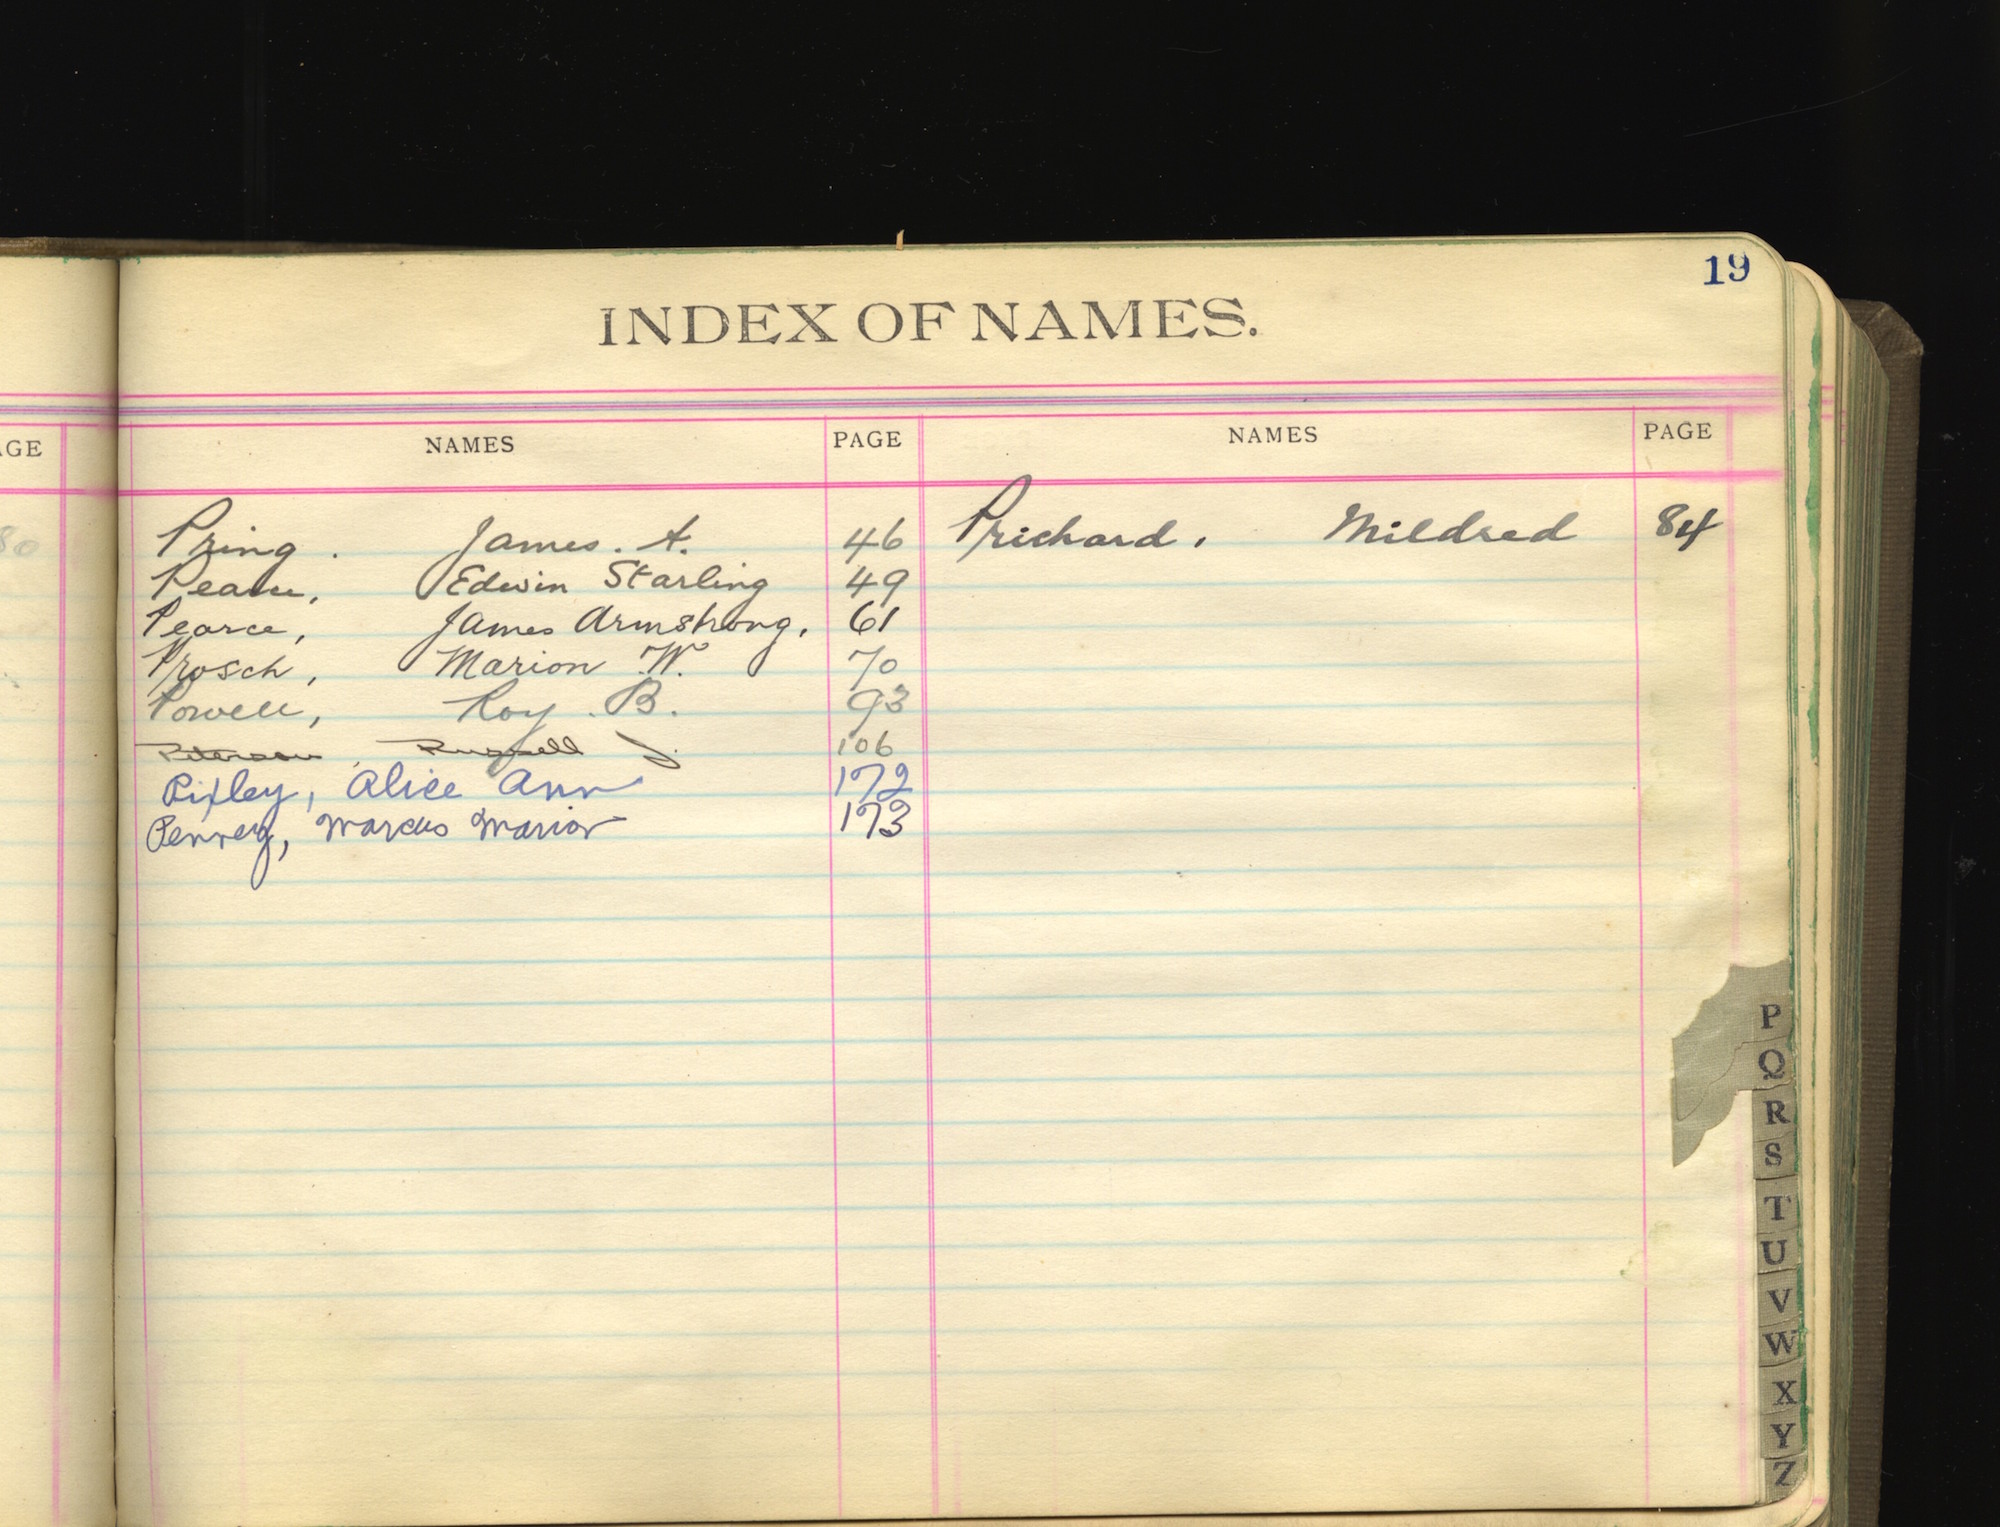 19
INDEX OF NAMES.
AGE
NAMES PAGE NAMES PAGE
80
Pring. James. A. 46
Prichard, Mildred 84
Pearce, Edwin Starling 49
Pearce, James Armstrong, 61
Prosch, Marion W. 70
Powell, Roy. B. 93
Peterson, Russell J. 106
Pixley, Alice Ann 172
Penney, Marcus Marion 173
P
Q
R
S
T
U
V
W
X
Y
Z